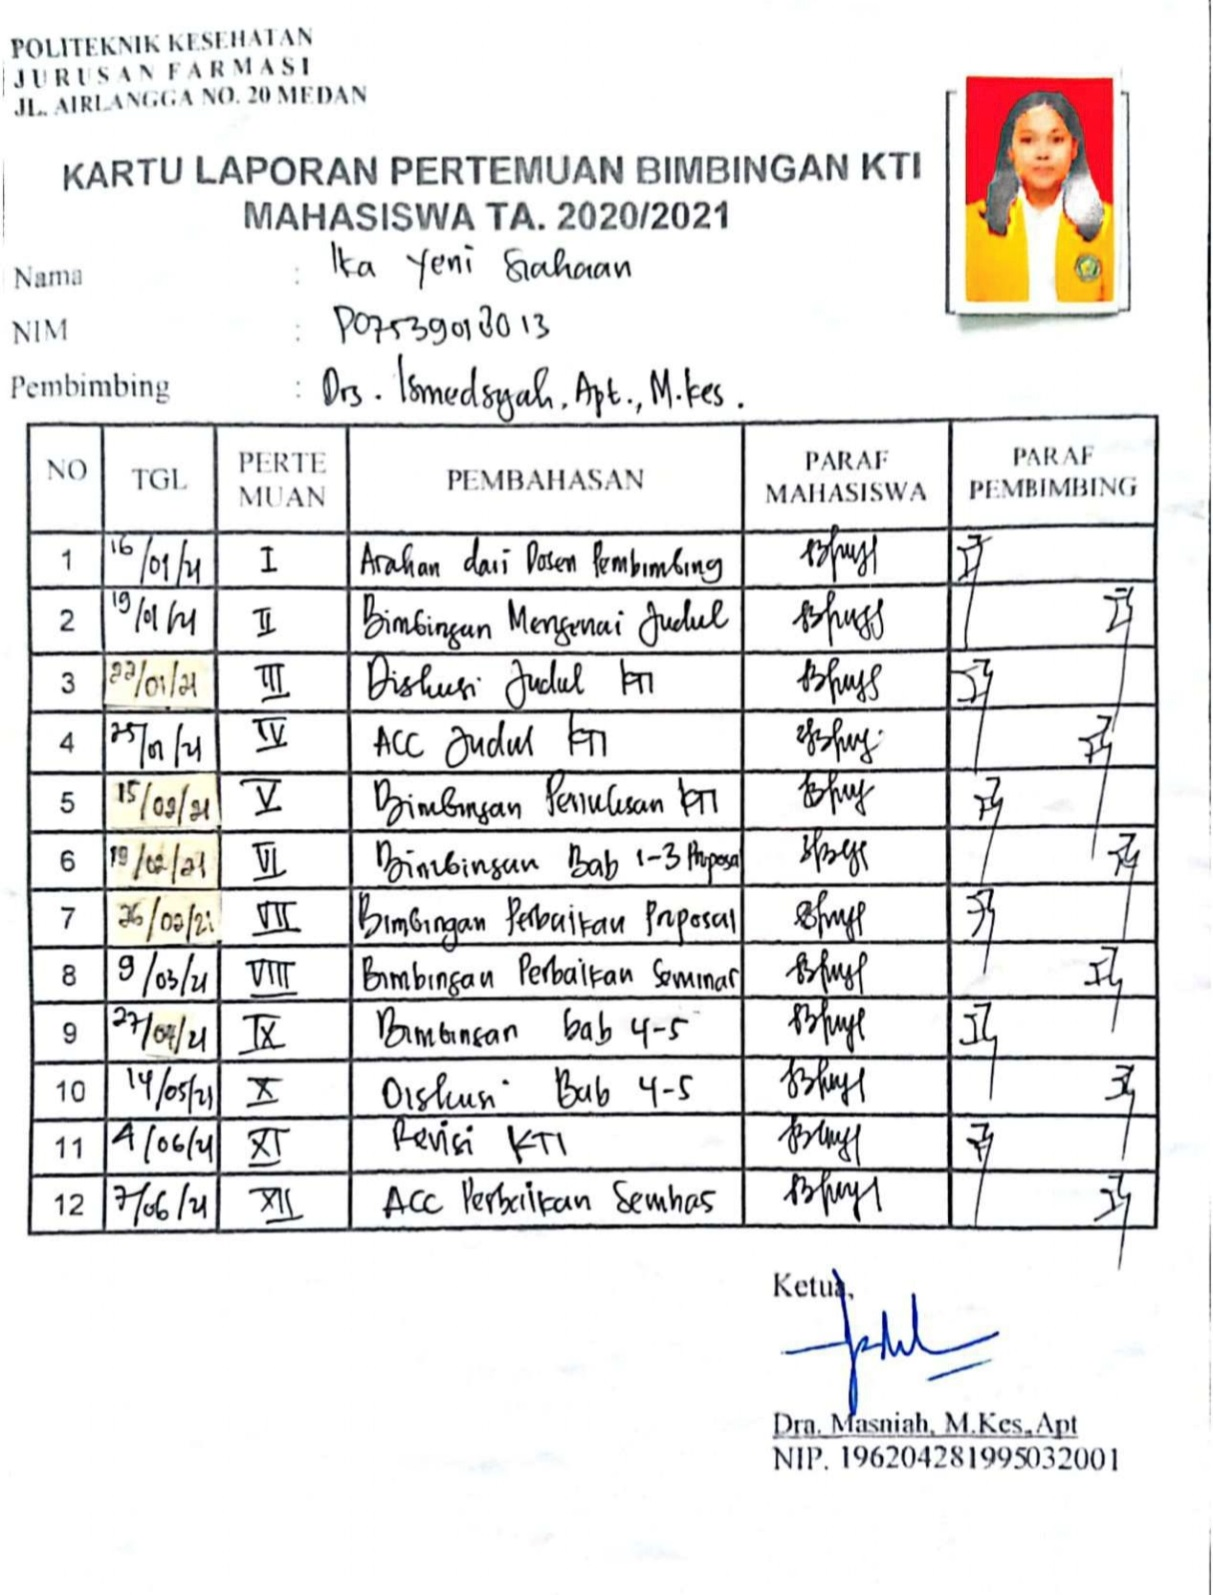 POLITEKNIK KESEHATAN
JURUSAN FARMASI
JL. AIRLANGGA NO. 20 MEDAN
KARTU LAPORAN PERTEMUAN BIMBINGAN KTI
MAHASISWA TA. 2020/2021
Nama : Ika Yeni Siahaan
NIM : P07539018013
Pembimbing : Drs. Ismedsyah, Apt., M.Kes.
NO TGL PERTE MUAN PEMBAHASAN PARAF MAHASISWA PARAF PEMBIMBING
1 16/01/21 I Arahan dari Dosen Pembimbing
2 19/01/21 II Bimbingan Mengenai Judul
3 22/01/21 III Diskusi Judul KTI
4 25/01/21 IV ACC Judul KTI
5 15/02/21 V Bimbingan Penulisan KTI
6 19/02/21 VI Bimbingan Bab 1-3 Proposal
7 26/02/21 VII Bimbingan Perbaikan Proposal
8 9/03/21 VIII Bimbingan Perbaikan Seminar
9 27/04/21 IX Bimbingan bab 4-5
10 14/05/21 X Diskusi Bab 4-5
11 4/06/21 XI Revisi KTI
12 7/06/21 XII ACC Perbaikan Semhas
Ketua,
Dra. Masniah, M.Kes, Apt
NIP. 196204281995032001